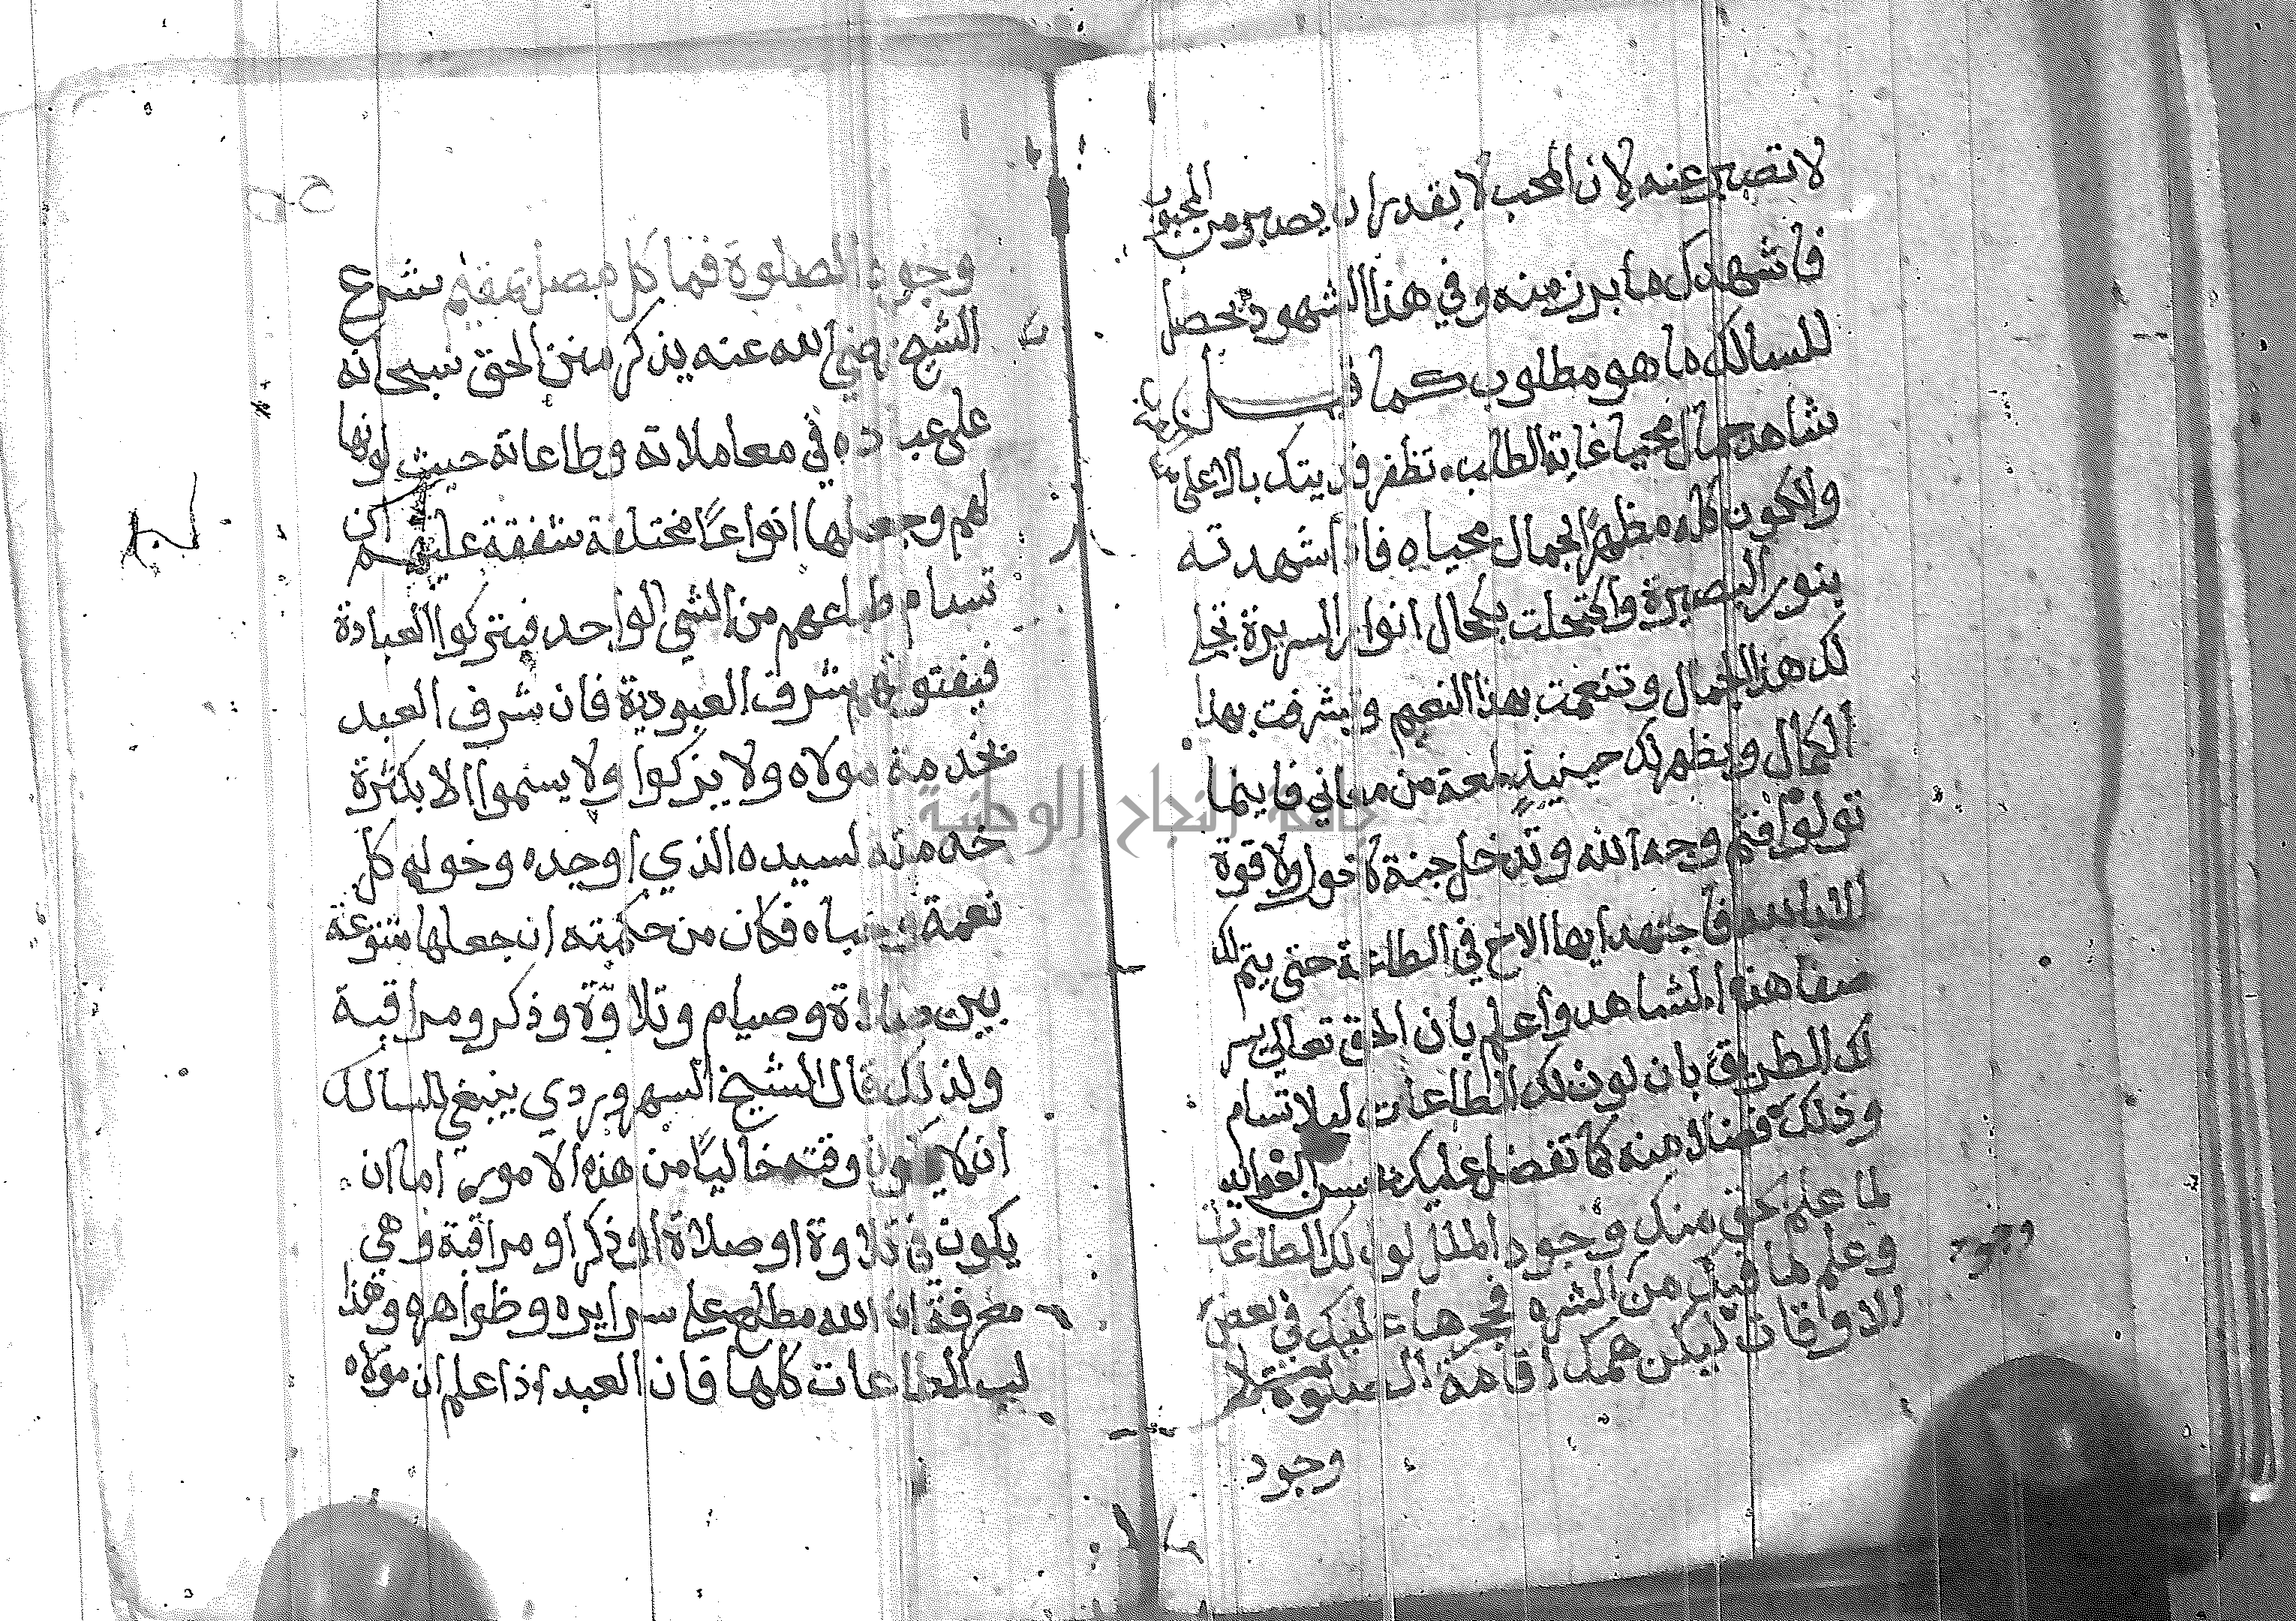 لا تصبر عنه لان المحب لا يقدر ان يصبر من المحبوب
فاشهدك ما برز منه وفي هذا الشهود يحصل
للسالك ما هو مطلوب كما قيل
شاهد جمال محيا غاية الطلب تظفر فديتك بالاعلى
والكون كله مظهرا لجمال محياه فاذا شهدته
بنور البصيرة واكتحلت بكحال انوار السريرة تجلى
لك هذا الجمال وتنعمت بهذا النعيم وتشرفت بهذا
الكمال ويظهر لك حينيذ لمعة من معاني فاينما
تولوا فثم وجه الله وتدخل جنة لا حول ولا قوة
الا بالله فاجتهد ايها الاخ في الطاعة حتى يتم لك
صفا هذه المشاهد واعلم بان الحق تعالى يسر
لك الطريق بان لون لك الطاعات ليلا تسام
وذلك فضلا منه كما تفضل عليك
لما علم الحق منك وجود الملل لون لك الطاعات
وعلم لما فيك من الشره فحجرها عليك في بعض
الاوقات ليكن همك اقامة الصلوة لا
وجود
وجود
وجود الصلوة فما كل مصل مقيم شرع
الشيخ رضي الله عنه يذكر منن الحق سبحانه
على عباده في معاملاته وطاعاته حيث لونها
لهم وجعلها انواعا مختلفة شفقة عليهم ان
تسام طباعهم من الشي الواحد فيتركوا العبادة
فيفتوتهم شرف العبودية فان شرف العبد
بخدمة مولاه ولا يزكوا ولا يسموا الا بكثرة
خدمته لسيده الذي اوجده وخوله كل
نعمة وحباه فكان من حكمته ان جعلها متنوعة
بين صلاة وصيام وتلاوة وذكر ومراقبة
ولذلك قال الشيخ السهروردي ينبغي للسالك
ان لا يكون وقته خاليا من هذه الامور اما ان
يكون في تلاوة او صلاة او ذكر او مراقبة وهي
معرفة ان الله مطلع على سرايره وظواهره وهذا
لب الطاعات كلها فان العبد اذا علم ان مولاه
جامعة النجاح الوطنية